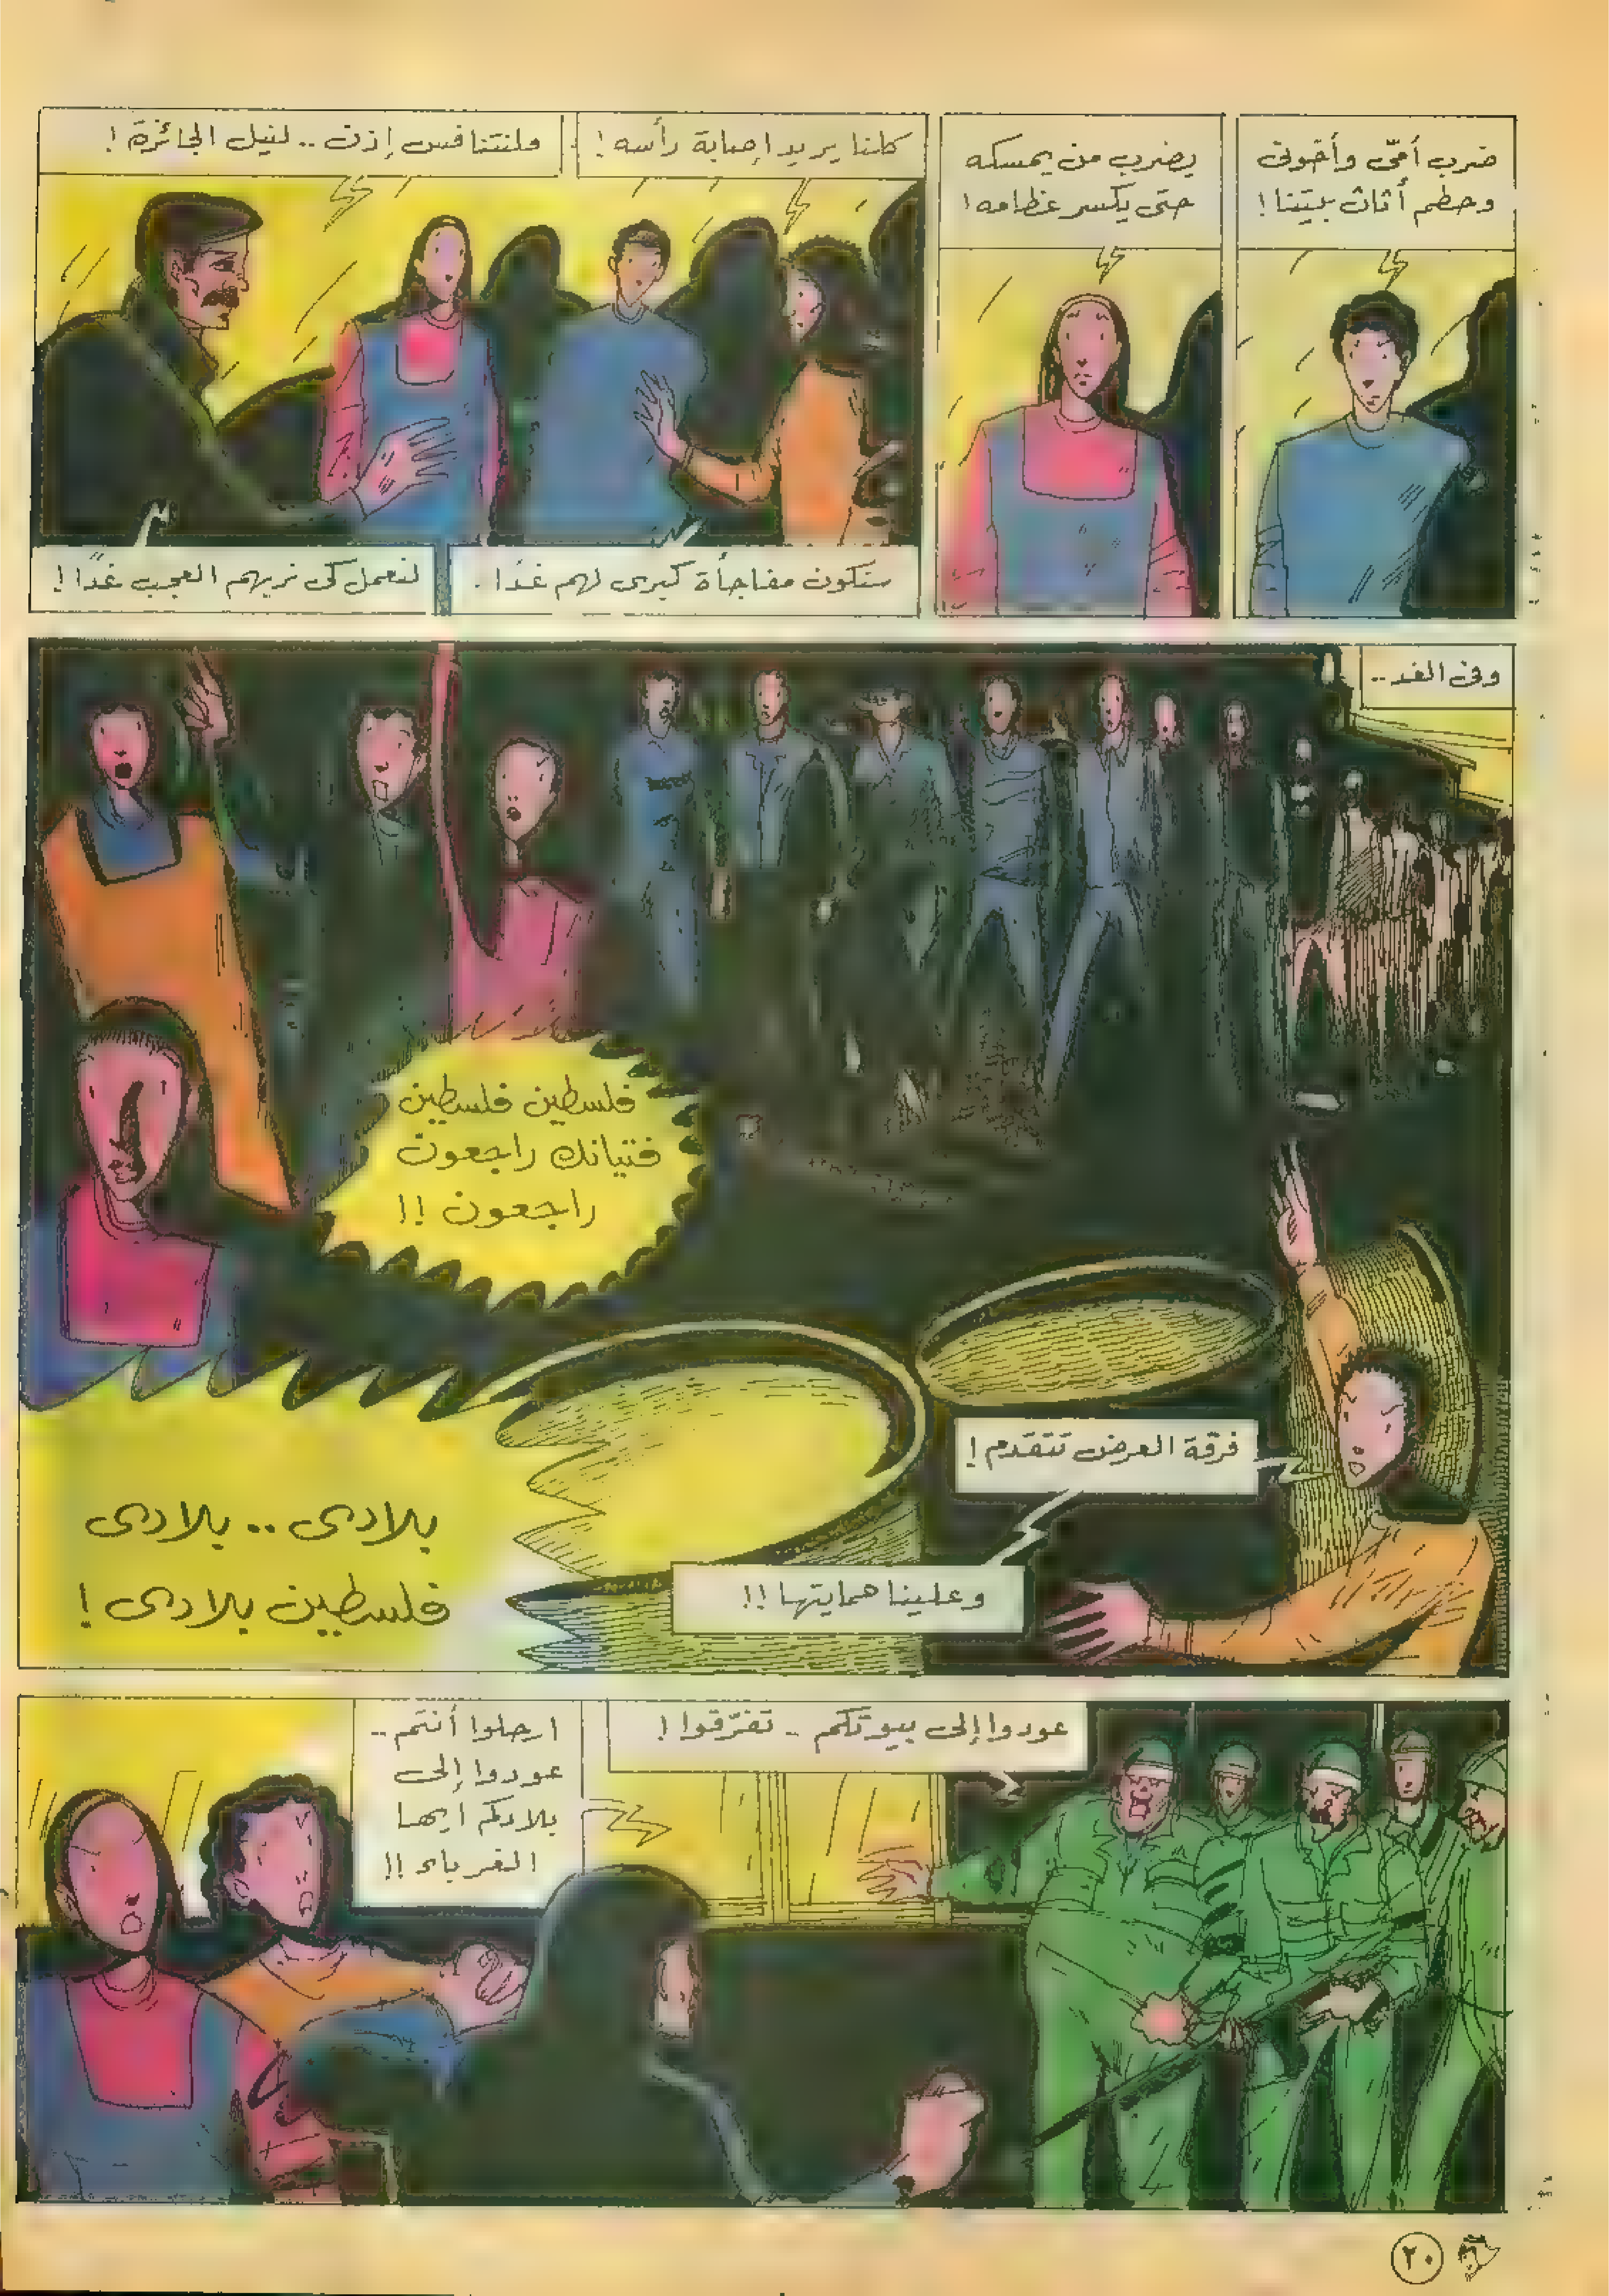 ضرب أمّى وأخوتى
وحطم أثاث بيتنا !
يضرب من يمسكه
حتى يكسر عظامه !
كلنا يريد إصابة رأسه !
ولنتنافس إذن .. لنيل الجائزة !
ستكون مفاجأة كبرى لهم غدًا .
لنعمل كى نريهم العجب غدًا !
وفى الغد ..
فلسطين فلسطين
فتيانك راجعون
راجعون !!
فرقة العرض تتقدم !
وعلينا حمايتها !!
بلادى .. بلادى
فلسطين بلادى !
عودوا إلى بيوتكم .. تفرّقوا !
ارحلوا أنتم ..
عودوا إلى
بلادكم أيها
الغرباء !!
٢٠